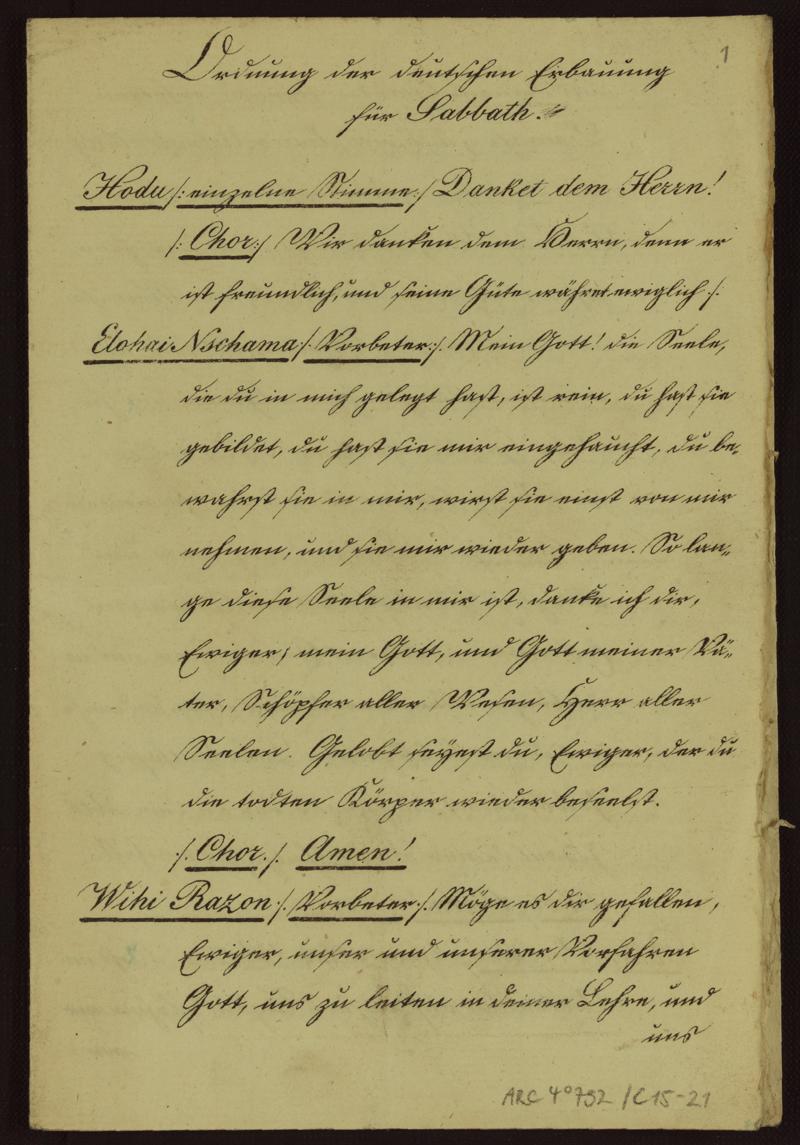 1
Ordnung der deutschen Erbauung
für Sabbath.
Hodu /: einzelne Stimme :/ Danket dem Herrn!
/: Chor :/ Wir danken dem Herrn, denn er
ist freundlich, und seine Güte währet ewiglich :/.
Elohai Nschama /: Vorbeter :/. Mein Gott! die Seele,
die du in mich gelegt hast, ist rein, du hast sie
gebildet, du hast sie mir eingehaucht, du be„
wahrst sie in mir, wirst sie einst von mir
nehmen, und sie mir wieder geben. So lan„
ge diese Seele in mir ist, danke ich dir,
Ewiger, mein Gott, und Gott meiner Vä„
ter, Schöpfer aller Wesen, Herr aller
Seelen. Gelobt seyest du, Ewiger, der du
die todten Körper wieder beseelst.
/. Chor. /. Amen!
Wihi Razon /. Vorbeter /. Möge es dir gefallen,
Ewiger, unser und unserer Vorfahren
Gott, uns zu leiten in deiner Lehre, und
uns
ARC 4° 792 / C15-21